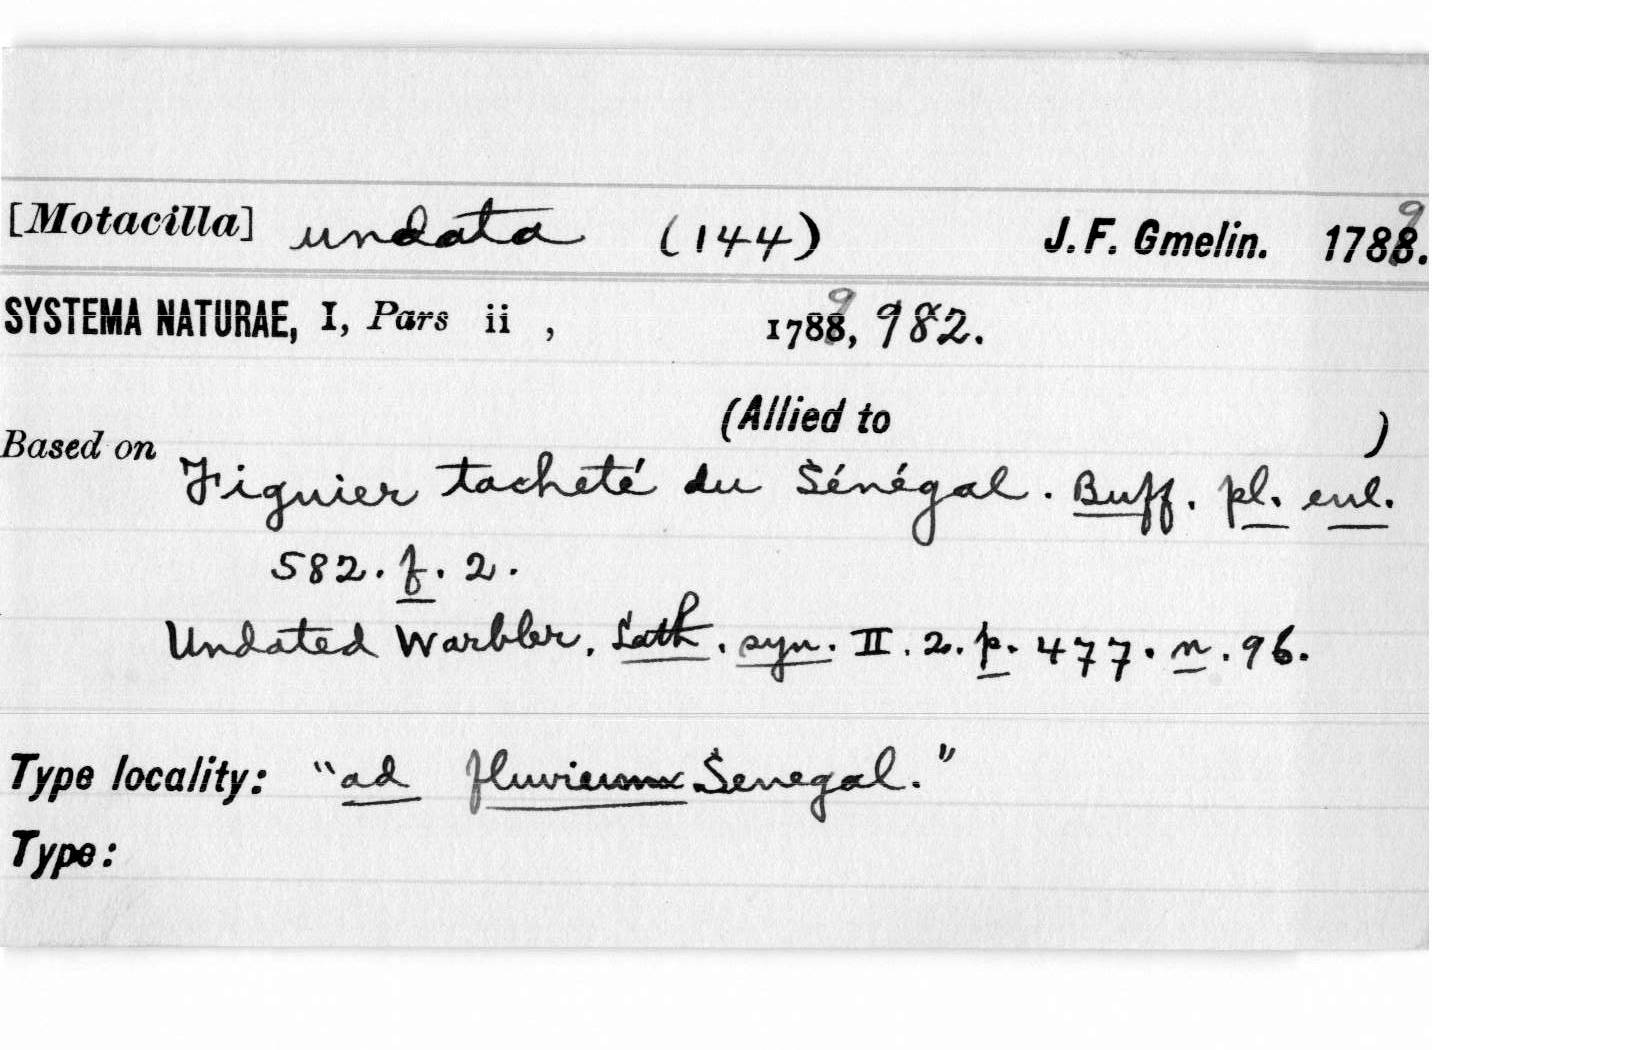 [Motacilla] undata (144) J. F. Gmelin. 1789.
SYSTEMA NATURAE, I, Pars ii , 1789, 982.
(Allied to )
Based on
Figuier tacheté du Sénégal. Buff. pl. enl.
582. f. 2.
Undated Warbler. Lath. syn. II. 2. p. 477. n. 96.
Type locality: "ad fluvium Senegal."
Type: